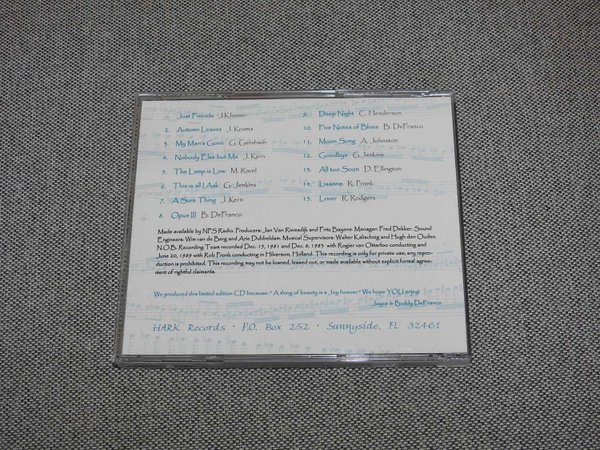 1. Just Friends J.Klenner
2. Autumn Leaves J. Kosma
3. My Man's Gone G. Gershwin
4. Nobody Else but Me J. Kern
5. The Lamp is Low M. Ravel
6. This is all I Ask G. Jenkins
7. A Sure Thing J. Kern
8. Opus III B. DeFranco
9. Deep Night C. Henderson
10. Five Notes of Blues B. DeFranco
11. Moon Song A. Johnston
12. Goodbye G. Jenkins
13. All too Soon D. Ellington
14. Lisanne R. Pronk
15. Lover R. Rodgers
Made available by NPS Radio. Producers: Jan Van Riemsdijk and Frits Bayens. Manager: Fred Dekker. Sound
Engineers: Wim van de Berg and Aris Dubbeldan. Musical Supervisors: Walter Kalischnig and Hugh den Ouden.
N.O.B. Recording Team recorded Dec. 15, 1981 and Dec. 8, 1983 with Rogier van Otterloo conducting and
June 20, 1989 with Rob Pronk conducting in Hilversum, Holland. This recording is only for private use; any repro-
duction is prohibited. This recording may not be loaned, leased out, or made available without explicit formal agree-
ment of rightful claimants.
We produced this limited edition CD because: "A thing of beauty is a Joy forever." We hope YOU enjoy!
Joyce & Buddy DeFranco
HARK Records • P.O. Box 252 • Sunnyside, FL 32461